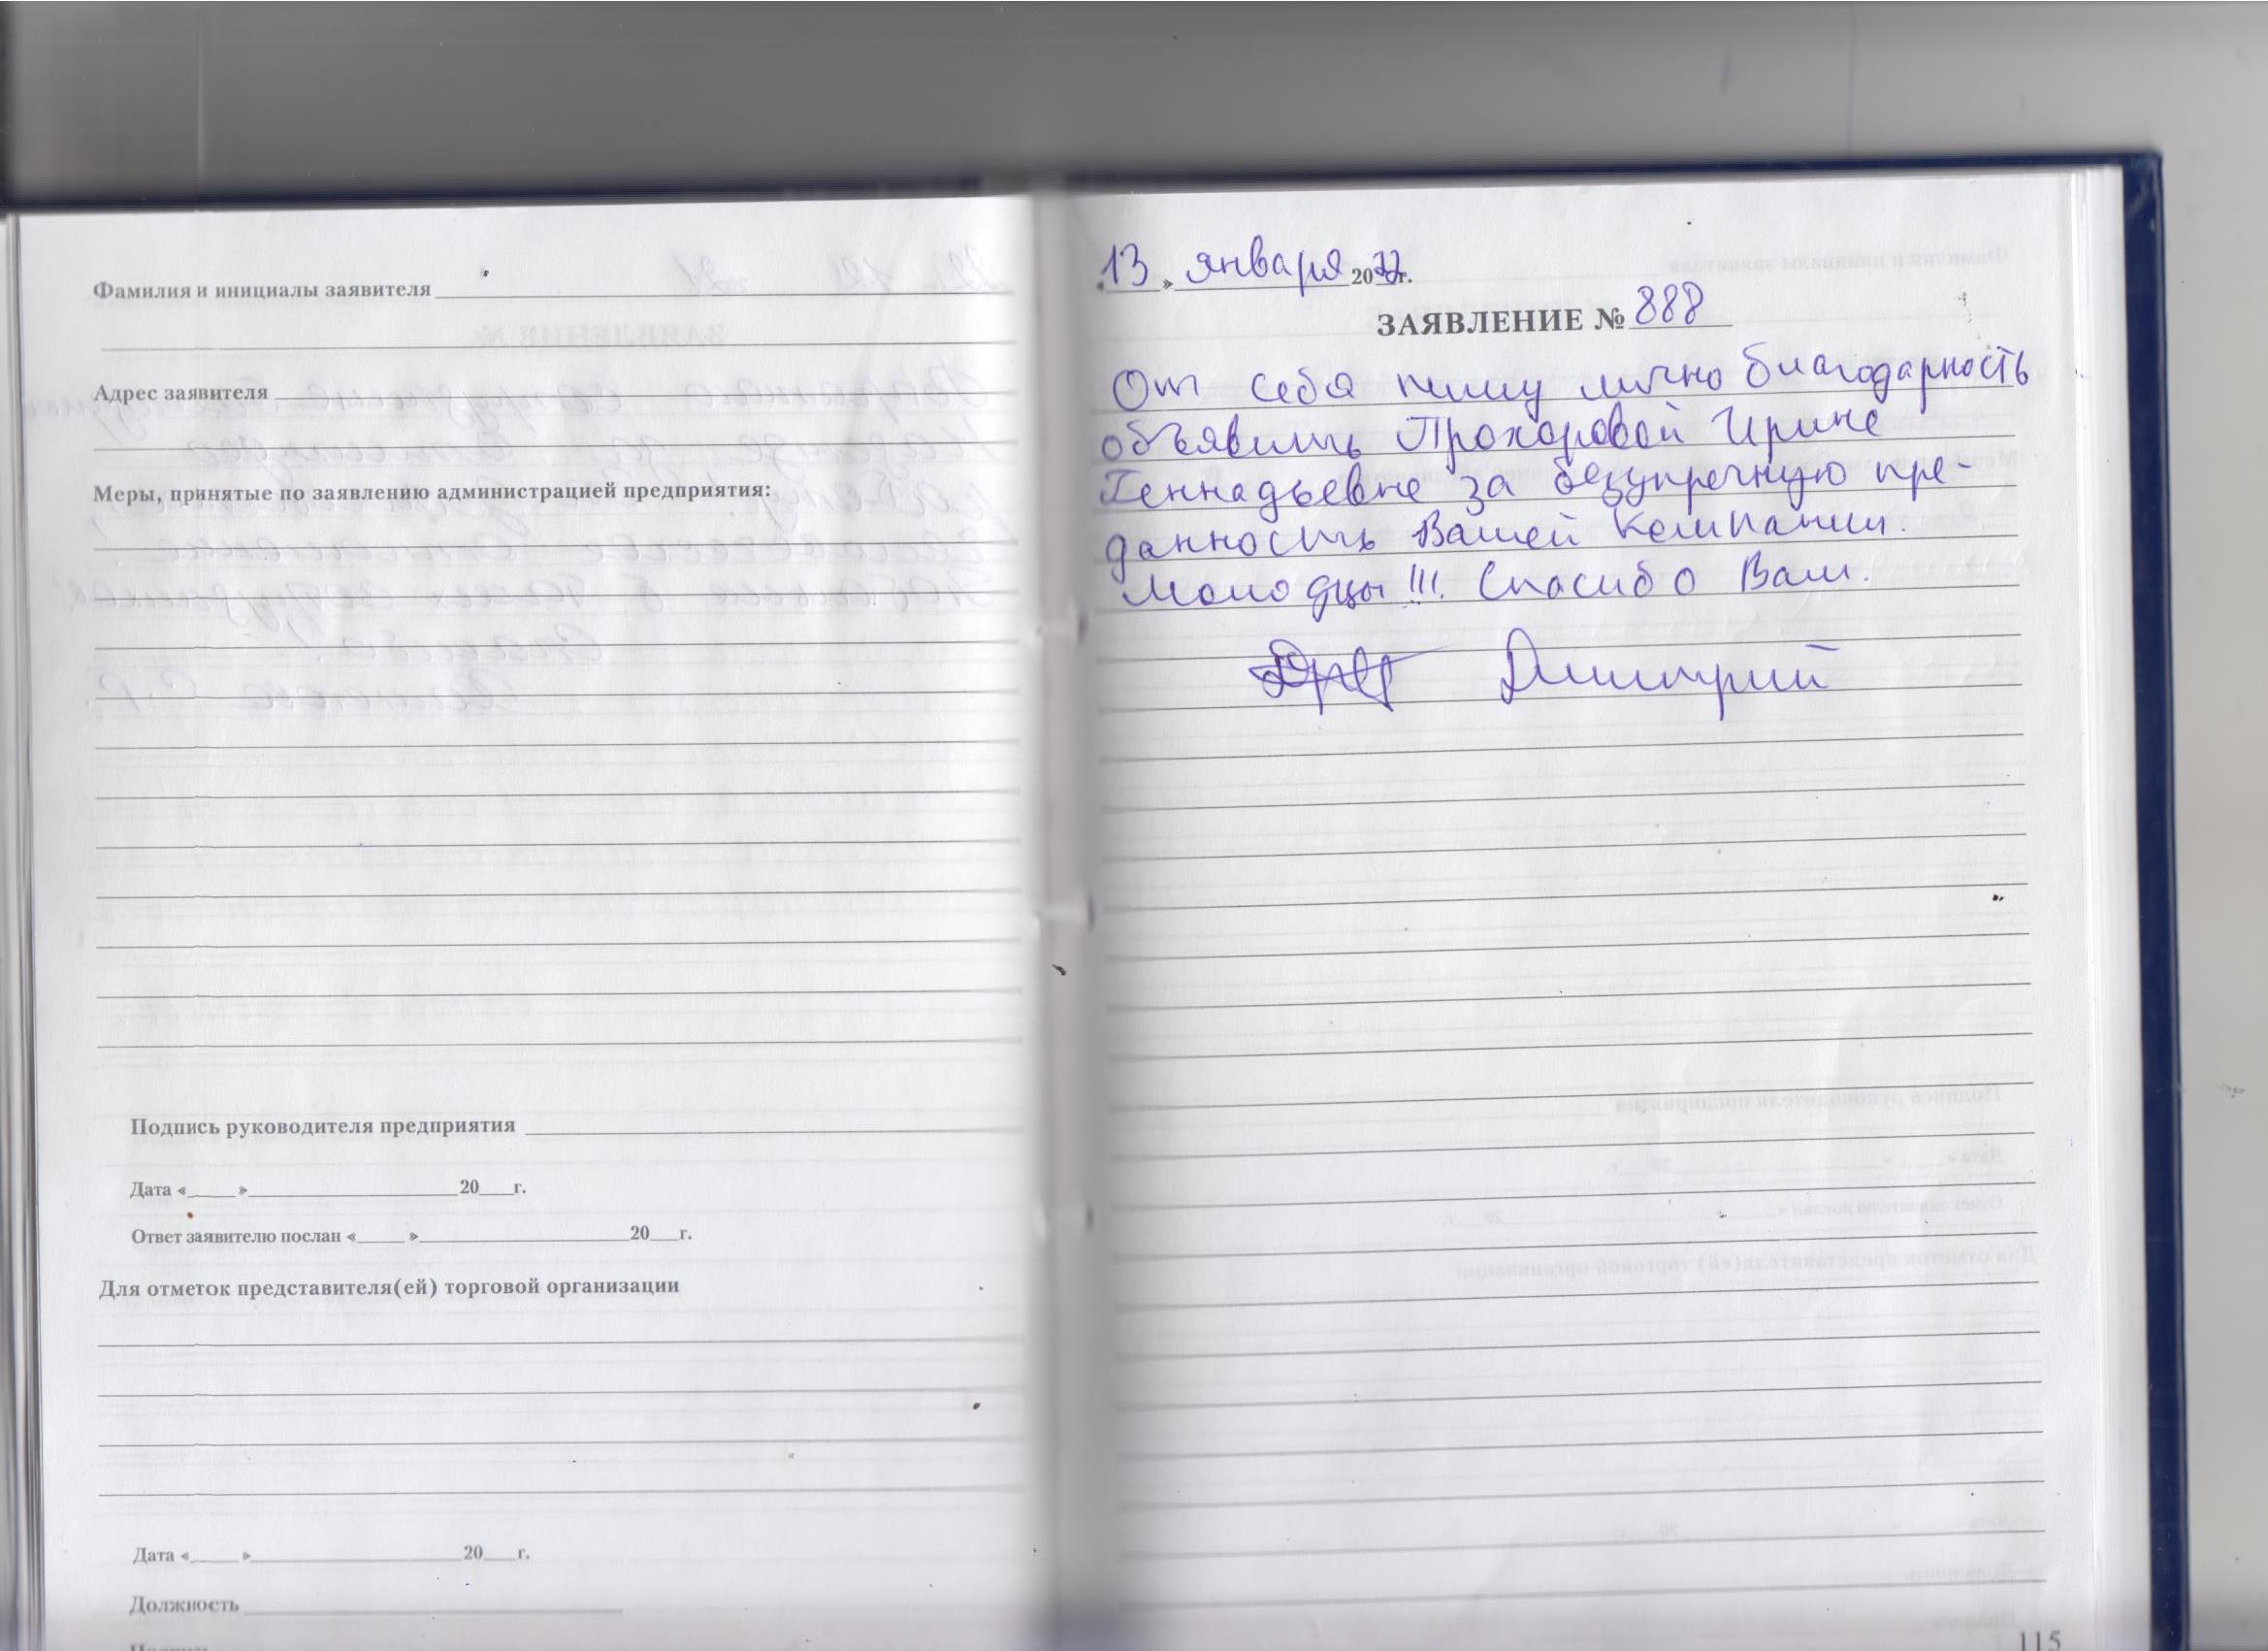 Фамилия и инициалы заявителя
Адрес заявителя
Меры, принятые по заявлению администрацией предприятия:
Подпись руководителя предприятия
Дата «____»____________________20___г.
Ответ заявителю послан «____»____________________20___г.
Для отметок представителя(ей) торговой организации
Дата «____»____________________20___г.
Должность
Подпись
«13» января 2022г.
ЗАЯВЛЕНИЕ № 888
От себя пишу лично благодарность
объявить Прохоровой Ирине
Геннадьевне за безупречную пре-
данность Вашей Компании.
Молодцы!!! Спасибо Вам.
Дмитрий
115